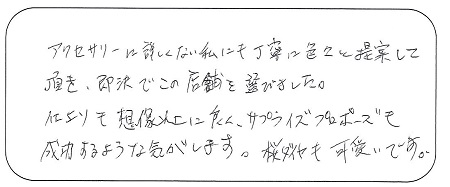 アクセサリーに詳しくない私にも丁寧に色々と提案して
頂き、即決でこの店舗を選びました。
仕上りも想像以上に良く、サプライズプロポーズも
成功するような気がします。桜ダイヤも可愛いです。